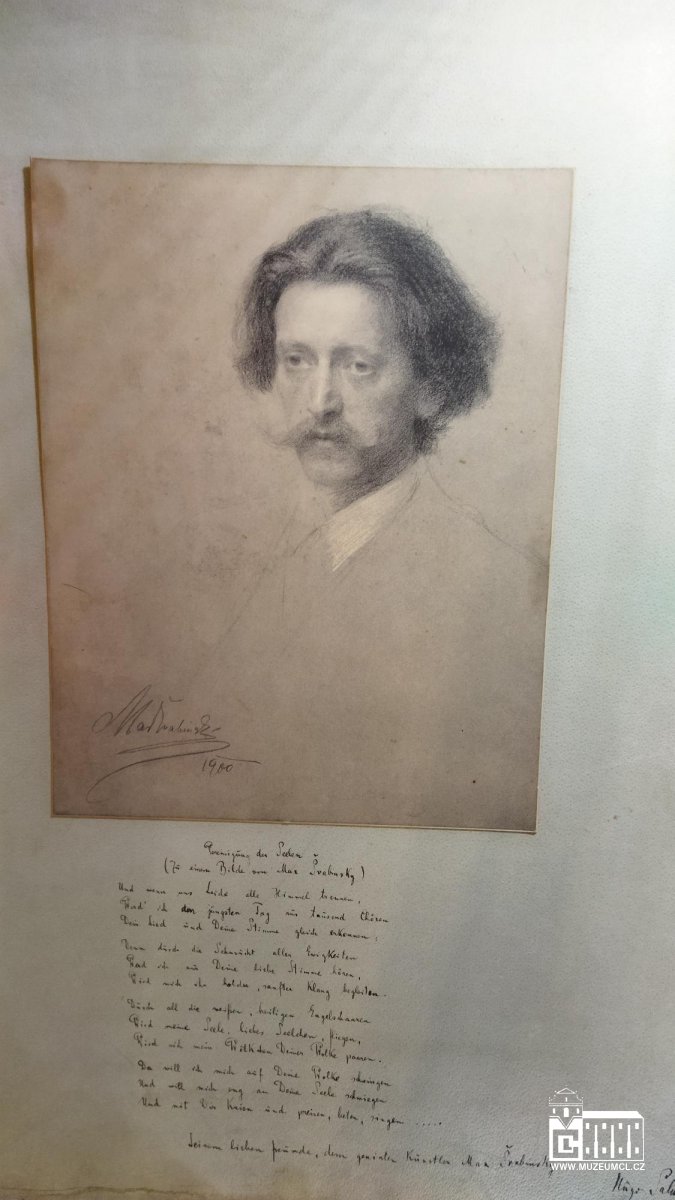 Max Švabinský
1900
Vereinigung der Seelen
(Zu einem Bilde von Max Švabinsky)
Und wenn uns beide alle Himmel trennen,
Werd' ich den jüngsten Tag aus tausend Chören
Dein Lied und Deine Stimme gleich erkennen;
Denn durch die Sehnsucht aller Ewigkeiten
Werd ich nur Deine liebe Stimme hören,
Wird mich ihr holder, sanfter Klang begleiten.
Durch all die weißen, heiligen Engelscharen
Wird meine Seele, liebes Seelchen, fliegen,
Wird sich mein Wölkchen Deiner Wolke paaren.
Da will ich mich auf Deine Wolke schwingen
Und will mich eng an Deine Seele schmiegen
Und mit Dir knien und preisen, beten, singen .....
Seinem lieben Freunde, dem genialen Künstler Max Švabinsky
Hugo
WWW.MUZEUMCL.CZ